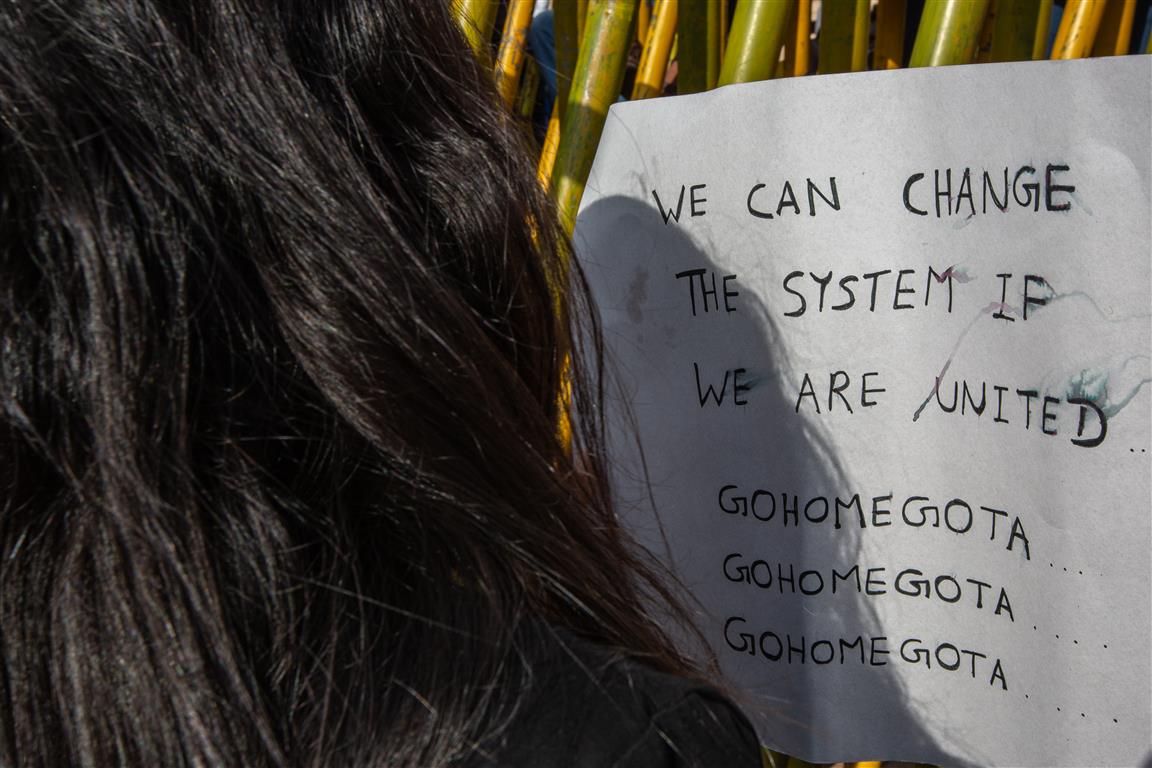 WE CAN CHANGE
THE SYSTEM IF
WE ARE UNITED ..
GOHOMEGOTA ....
GOHOMEGOTA ....
GOHOMEGOTA ....